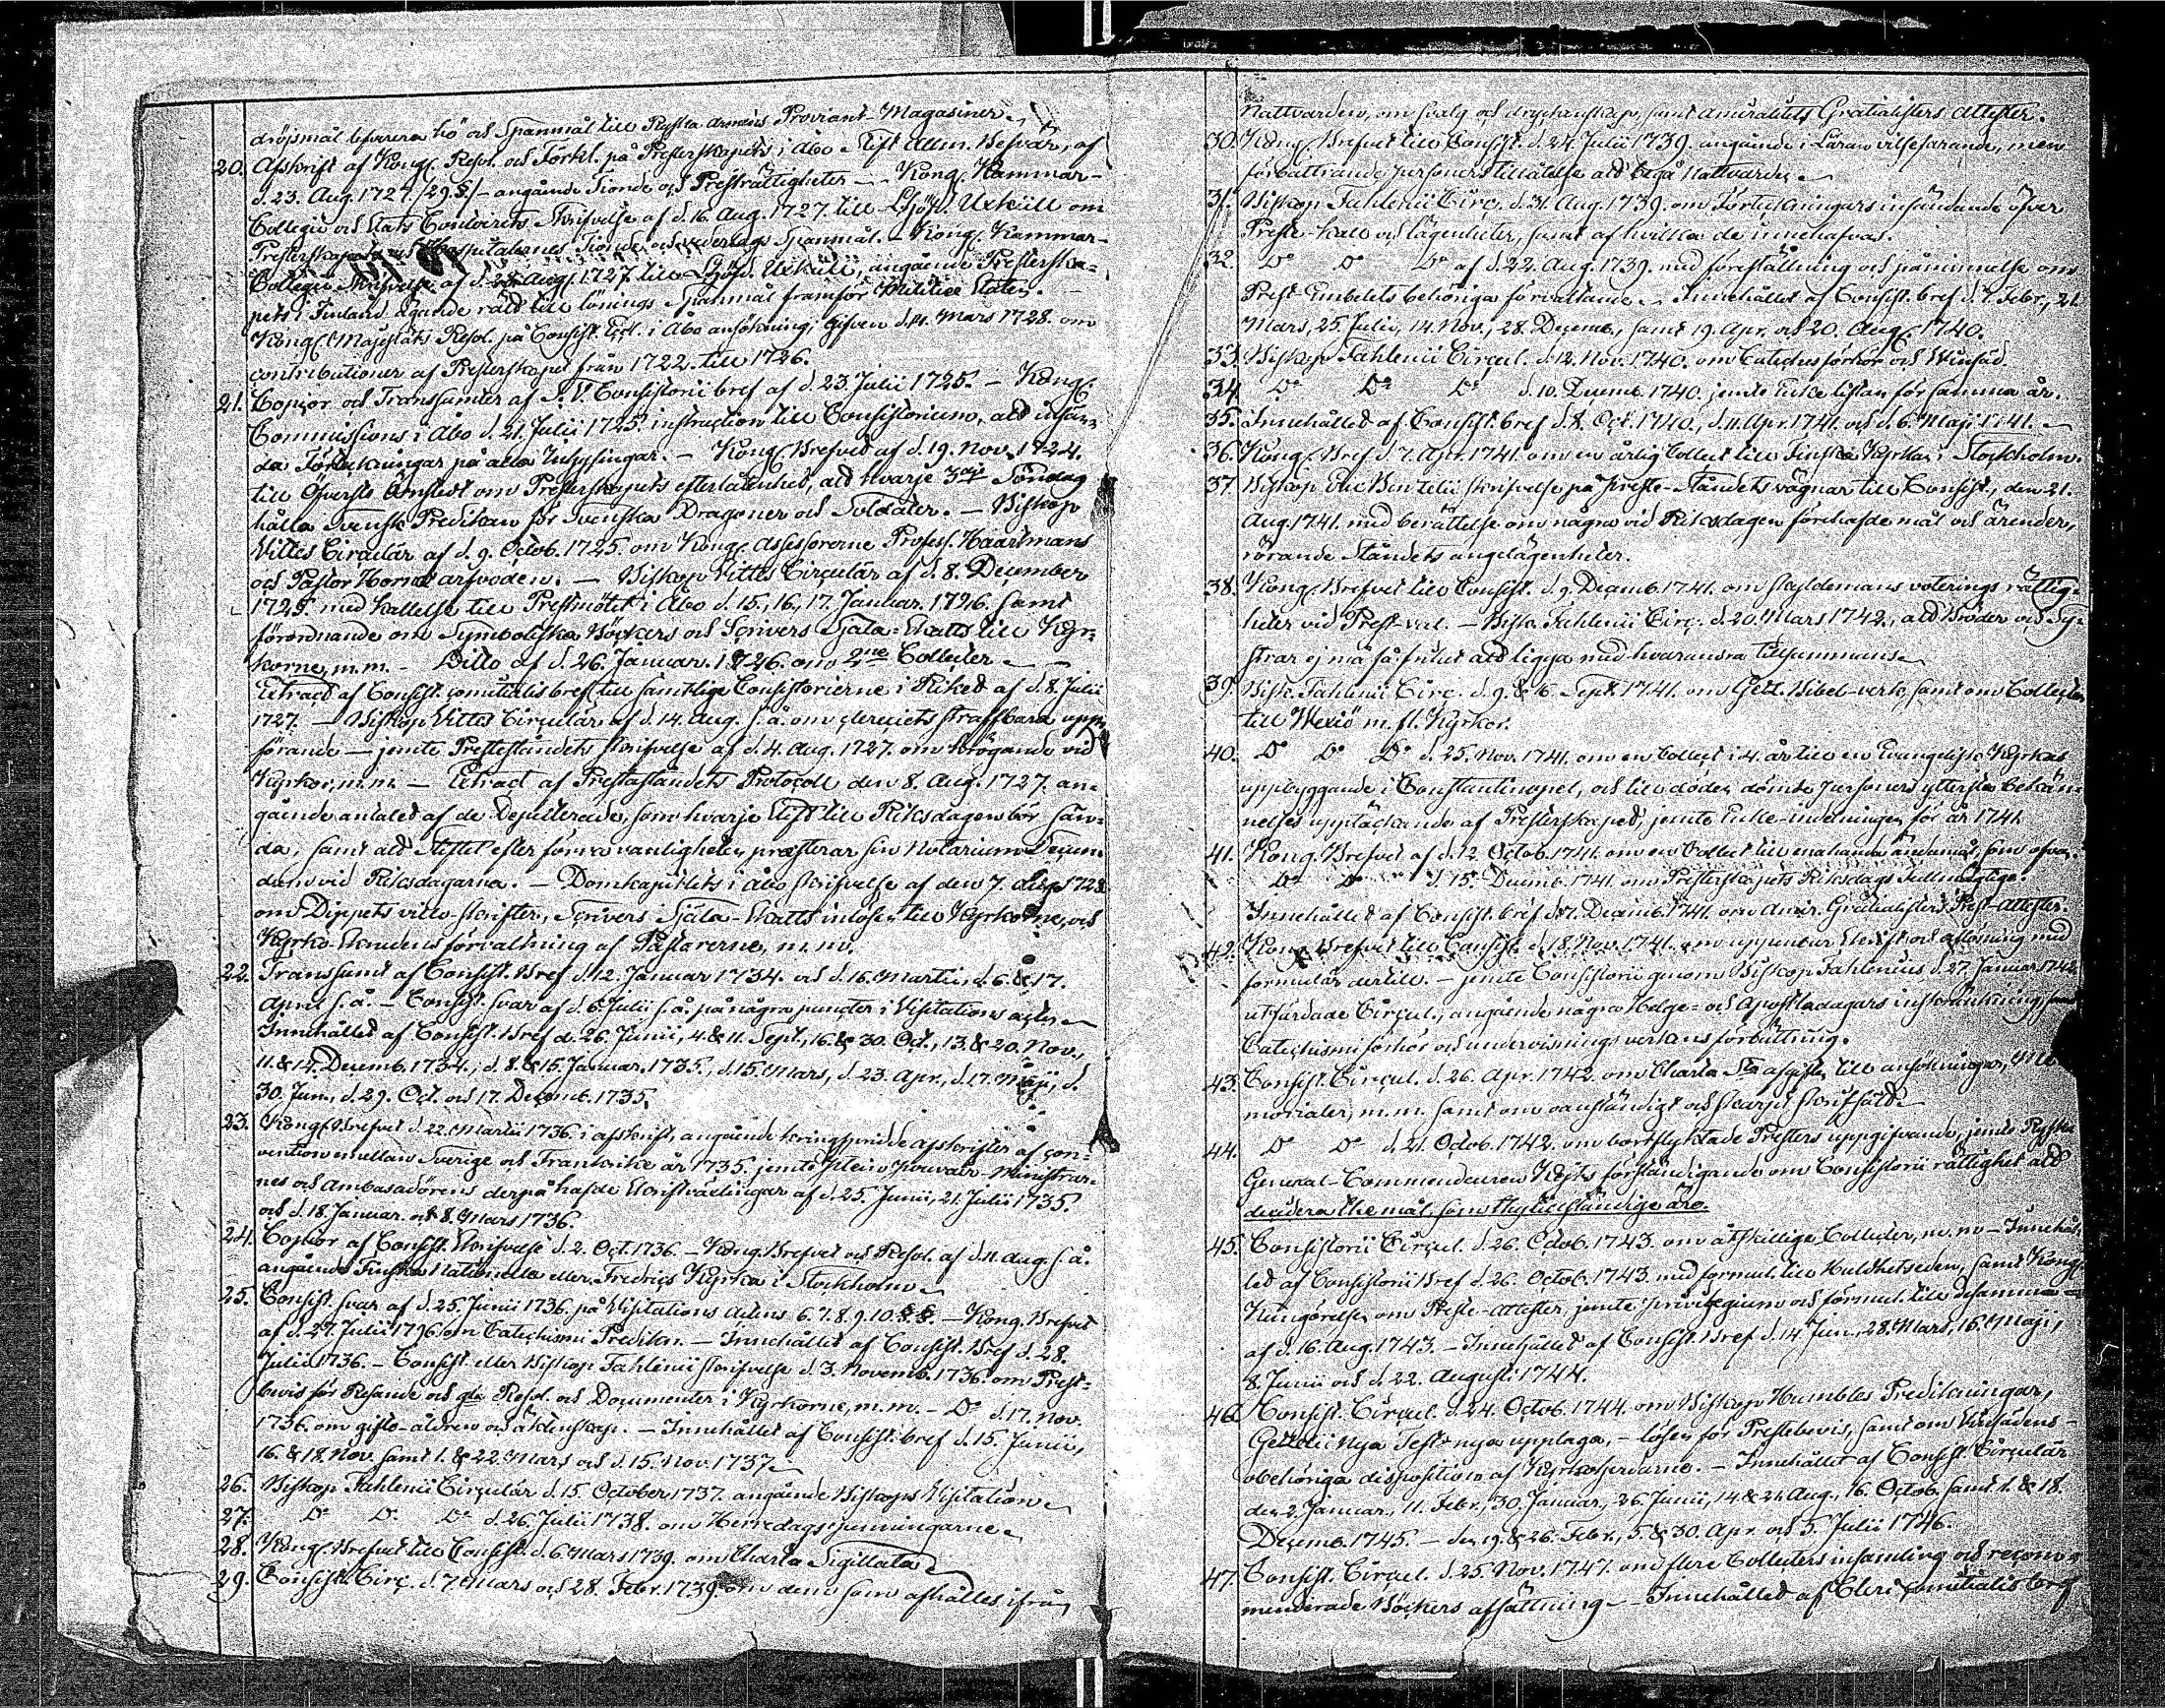 dröjsmål lefverera hö och Spanmål till Ryska Arméns Proviant-Magasiner.
20. Afskrift af Kongl. Resol. och Förkl. på Presterskapets i Åbo Stift Allm. Besvär, af
d. 23. Aug. 1727. /29.§/ - angående Tionde och Presträttigheter - Kongl. Kammar-
Collegii och Stats Contoirets Skrifvelse af d. 16. Aug. 1727. till Lhöfd. Uxküll om
Presterskapets och Hospitalernes Tionde och vederlags Spanmål. - Kongl. Kammar-
Collegii Skrifvelse af d. Aug. 1727. till Lhöfd. Uxküll, angående Presterska-
pets i Finland ägande rätt till lönings Spanmål framför Militiæ Staten.
Kongl. Majestäts Resol. på Consist. Eccl. i Åbo ansökning, gifven d. 14. Mars 1728. om
contributioner af Presterskapet från 1722. till 1726.
21. Copior och Transsumter af S. V. Consistorii bref af d. 23. Julii 1725. - Kongl.
Commissions i Åbo d. 21. Julii 1725. instruction till Consistorium, att insän-
da Förteckningar på alla Inlysningar. - Kongl. Brefvet af d. 19. Nov. 1724.
till Öfverste Armfelt om Presterskapets efterlåtenhet, att hvarje 3dje Söndag
hålla Svensk Predikan för Svenska Dragoner och Soldater. - Biskop
Vittes Circulär af d. 9. Octob. 1725. om Kongl. Assessorerne Profess. Haartmans
och Pastor Hornæi arfvoden. - Biskop Vittes Circulär af d. 8. December
1725. med kallelse till Prestmötet i Åbo d. 15., 16., 17. Januar. 1726. samt
förordnande om Symboliska Böckers och Scrivers Själa-Skatts till Kyr-
korne, m.m. - Ditto af d. 26. Januar. 1726. om 2ne Collecter
Extract af Consist. comitialis bref till samtlige Consistorierne i Riket af d. 8. Julii
1727. - Biskop Vittes Circulär af d. 14. Aug. s. å. om cleresiets straffbara upp-
förande - jemte Presteståndets skrifvelse af d. 4. Aug. 1727. om krögande vid
Kyrkor, m.m. - Extract af Prestaståndets Protocoll den 8. Aug. 1727. an-
gående antalet af de Deputerade, som hvarje Stift till Riksdagen bör sän-
da, samt att Stiftet efter förra vanligheten præsterar sin Notarium Secun-
dum vid Riksdagarna. - Domkapitlets i Åbo skrifvelse af den 7. Aug. 1728
om Dippels villo-skrifter, Scrivers Själa-Skatts inlösen till Kyrkorne, och
Kyrko-Skuldens förvaltning af Pastorerne, m.m.
22. Transsumt af Consist. Bref d. 12. Januar 1734. och d. 16. Martii, d. 6. & 17.
April s. å. - Consist. svar af d. 6. Julii s. å. på några puncter i Visitations acten
Innehållet af Consist. Bref d. 26. Junii, 4. & 11. Sept., 16. & 30. Oct., 13. & 20. Nov.,
11. & 14. Decemb. 1734., d. 8. & 15. Januar. 1735., d. 15. Mars, d. 23. Apr., d. 17. Maji, d.
30. Jun., d. 29. Oct. och 17. Decemb. 1735.
23. Kongl. Brefvet d. 22. Martii 1736. i afskrift, angående kringspridde afskrifter af con-
vention emellan Sverige och Frankrike år 1735. jemte Plein pouvoir-Ministrar-
nes och Ambasadörens derpå hafde Skriftväxlingar af d. 25. Junii, 21. Julii 1735.
och d. 18. Januar. och 8. Mars 1736.
24. Copior af Consist. Skrifvelse d. 2. Oct. 1736. - Kong. Brefvet och Resol. af d. 11. Aug. s. å.
angående Finska Nationella eller Fredrics Kyrka i Stockholm
25. Consist. svar af d. 25. Junii 1736. på Visitations Actens 6. 7. 8. 9. 10. §§. - Kong. Brefvet
af d. 27. Julii 1796 om Catechismi Predikn. - Innehållet af Consist. Bref d. 28.
Julii 1736. - Consist. eller Biskop Fahlenii skrifvelse d. 3. Novemb. 1736. om Prest-
bevis för Resande och gla Resol. och Documenter i Kyrkorne, m.m. - Do d. 17. Nov.
1736. om gifto-åldren och äktenskap. - Innehållet af Consist. bref d. 15. Junii,
16. & 18. Nov. samt 1. & 22. Mars och d. 15. Nov. 1737
26. Biskop Fahlenii Circulär d. 15. October 1737. angående Biskops Visitation
27. Do Do Do d. 26. Julii 1738. om Herredagspenningarne
28. Kongl. Brefvet till Consist. d. 6. Mars 1739. om Charta Sigillata
29. Consist. Circ. d. 7. Mars och 28. Febr. 1739. om dem som afhålles ifrån
Nattvarden, om svalg och dryckenskap, samt Amiralitets Gratialisters attester.
30. Kongl. Brefvet till Consist. d. 24. Julii 1739. angående i Läran vilsefarande, men
förbättrande personers tillåtelse att begå Nattvarden
31. Biskop Fahlenii Circ. d. 31. Aug. 1739. om Förteckningars insändande öfver
Preste-kall och lägenheter, samt af hvilka de innehafvas.
32. Do Do Do af d. 22. Aug. 1739. med föreställning och påminnelse om
Prest-Embetets behöriga förvaltande. Innehållet af Consist. bref d. 7. Febr., 21.
Mars, 25. Julii, 14. Nov., 28. Decemb., samt 19. Apr. och 20. Aug. 1740.
33. Biskop Fahlenii Circul. d. 12. Nov. 1740. om Catechesförhör och Winsäd.
34. Do Do Do d. 10. Decemb. 1740. jemte Enke listan för samma år.
35. Innehållet af Consist. bref d. 8. Oct. 1740., d. 11. Apr. 1741. och d. 6. Maji 1741.
36. Kongl. Bref d. 7. Apr. 1741. om en årlig Collect till Finska Kyrkan i Stockholm.
37. Biskop Eric Benzelii skrifvelse på Preste-Ståndets vägnar till Consist., den 21.
Aug. 1741. med berättelse om några vid Riksdagen förehafde mål och ärender,
rörande Ståndets angelägenheter.
38. Kong. Brefvet till Consist. d. 9. Decemb. 1741. om skyldemans voterings rättig-
heter vid Prest-val. - Bisk. Fahlenii Circ. d. 20. Mars 1742., att Bröder och Sy-
strar ej må få frihet att ligga med hvarandra tillsammans
39. Bisk. Fahlenii Circ. d. 9. & 16. Sept. 1741. om Gezl. Bibel-verk, samt om Collecter
till Wexiö m. fl. Kyrkor.
40. Do Do Do d. 25. Nov. 1741. om en Collect i 4. år till en Evangelisk Kyrkas
uppbyggande i Constantinopel, och till döden dömde personers yttersta bekän-
nelses upptäckande af Presterskapet, jemte Enke-indelningen för år 1741
41. Kong. Brefvet af d. 12. Octob. 1741. om en Collect till enahanda ändamål, som ofvan.
Do Do d. 15. Decemb. 1741. om Presterskapets Riksdags Fullmägtige.
Innehållet af Consist. bref d. 7. Decemb. 1741. om Amir. Gratialisters Prest-attester.
42. Kong. Brefvet till Consist. d. 18. Nov. 1741. om uppenbar Skrift och aflösning med
formulär dertill. - jemte Consistorii genom Biskop Fahlenius d. 27. Januar 1742
utfärdade Circul., angående några Helge- och Apostladagars inskränkning, samt
Catechismi förhör och undervisnings verkans förbättring.
43. Consist. Circul. d. 26. Apr. 1742. om Charta Sta afgiften till ansökningar, Me-
morialer, m.m. samt om oanständigt och skarpt skrifsätt
44. Do Do d. 21. Octob. 1742. om bortflyktade Presters uppgifvande, jemte Ryska
General-Commendeuren Kejts förständigande om Consistorii rättighet att
decidera the mål, som thy lyda ständige äro.
45. Consistorii Circul. d. 26. Octob. 1743. om åtskillige Collecter, m.m - Innehål-
let af Consistorii Bref d. 26. Octob. 1743. med formul. till Huldhetseden, samt Kongl.
Kungörelse om Preste-attester, jemte privilegium och formul. till desamma
af d. 16. Aug. 1743. - Innehållet af Consist. Bref d. 14 Jun., 28. Mars, 16. Maji,
8. Junii och d. 22. Augusti 1744.
46. Consist. Circul. d. 24. Octob. 1744. om Biskop Humbles Predikningar,
Gezelii Nya Test. nya upplaga, - lösen för Prestebevis, samt om Vinsädens
obehöriga disposition af Kyrkoherdarne. - Innehållet af Consist. Circulär
den 2. Januar., 11. Febr., 30. Januar., 26. Junii, 14. & 21. Aug., 16. Octob. samt 1. & 18.
Decemb. 1745. - den 19. & 26. Febr., 5. & 30. Apr. och 5. Julii 1746.
47. Consist. Circul. d. 25. Nov. 1747. om flere Collecters insamling och recom-
menderade Böckers afsättning - Innehållet af Cleri comitialis bref